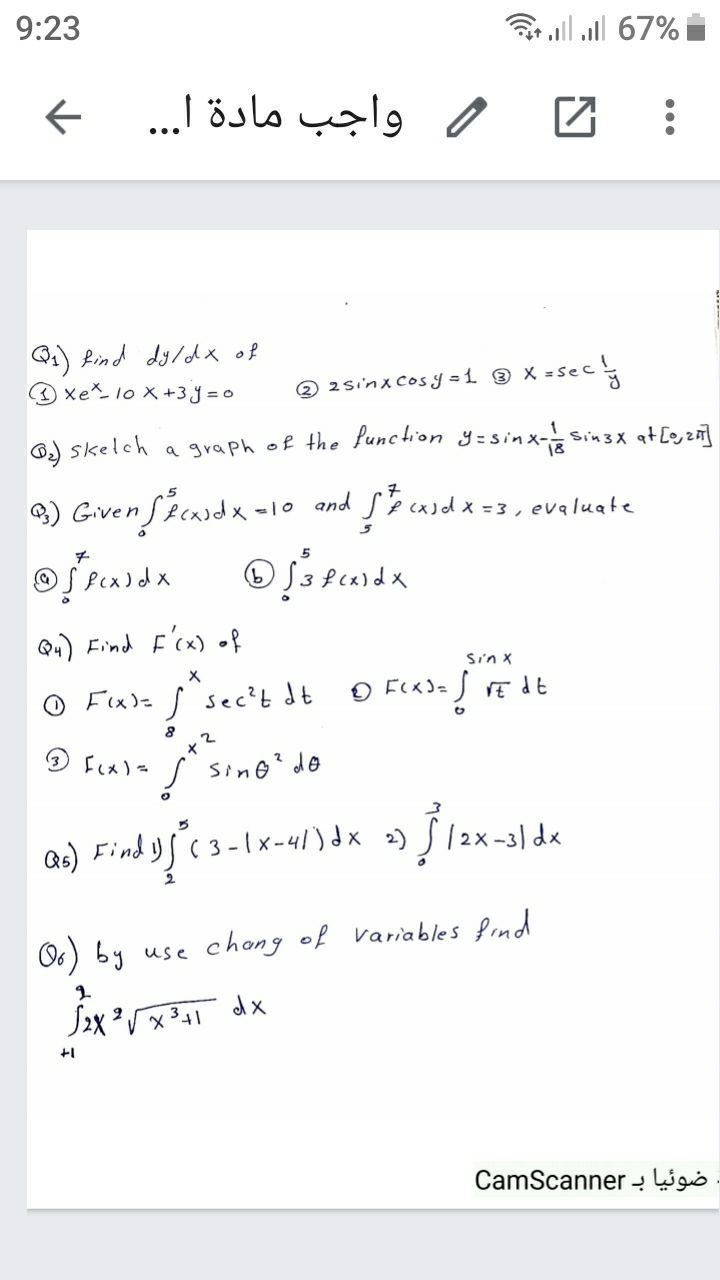 9:23 67%
واجب مادة ا...
Q1) find dy/dx of
① xeˣ-10x+3y=0 ② 2sinxcosy=1 ③ x=sec 1/y
Q2) Skelch a graph of the function y=sinx-1/18 sin3x at [0,2π]
Q3) Given ∫₀⁵ f(x)dx=10 and ∫₅⁷ f(x)dx=3, evaluate
ⓐ ∫₀⁷ f(x)dx ⓑ ∫₀⁵ 3f(x)dx
Q4) Find F'(x) of
① F(x)= ∫₈ˣ sec²t dt ② F(x)= ∫₀^(sinx) √t dt
③ F(x)= ∫₀^(x²) sinθ² dθ
Q5) Find 1) ∫₂⁵ (3-|x-4|)dx 2) ∫₀³ |2x-3|dx
Q6) by use chang of variables find
∫₊₁² 2x²√(x³+1) dx
ضوئيا بـ CamScanner